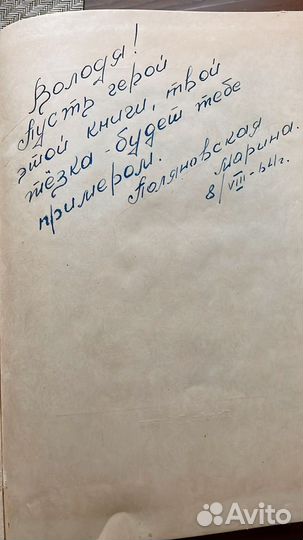 Володя!
Пусть герой
этой книги, твой
тёзка - будет тебе
примером.
Поляновская
Марина.
8/VIII-64г.
Avito